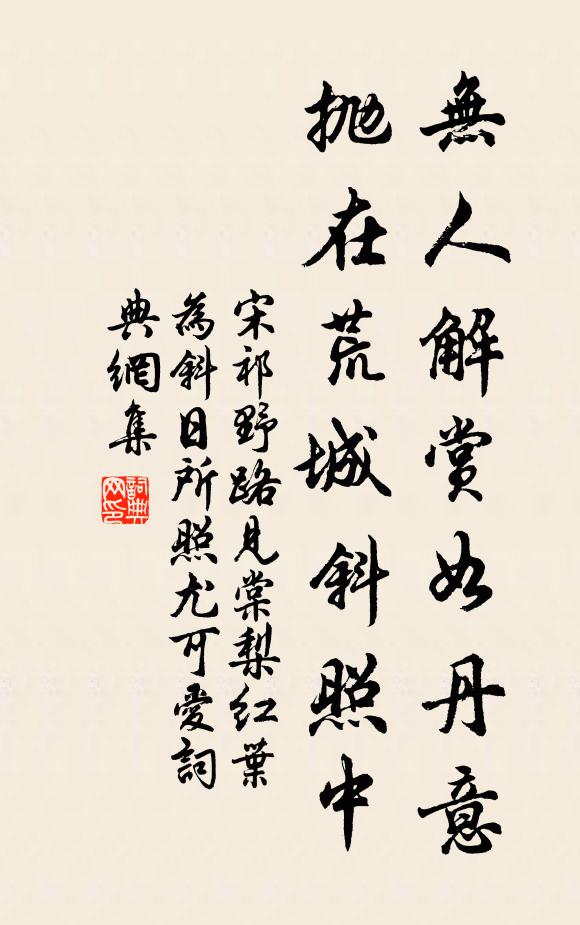 無人解賞如丹意
抛在荒城斜照中
宋祁野路見棠梨紅葉
為斜日所照尤可愛詞
典網集
詞典
网印